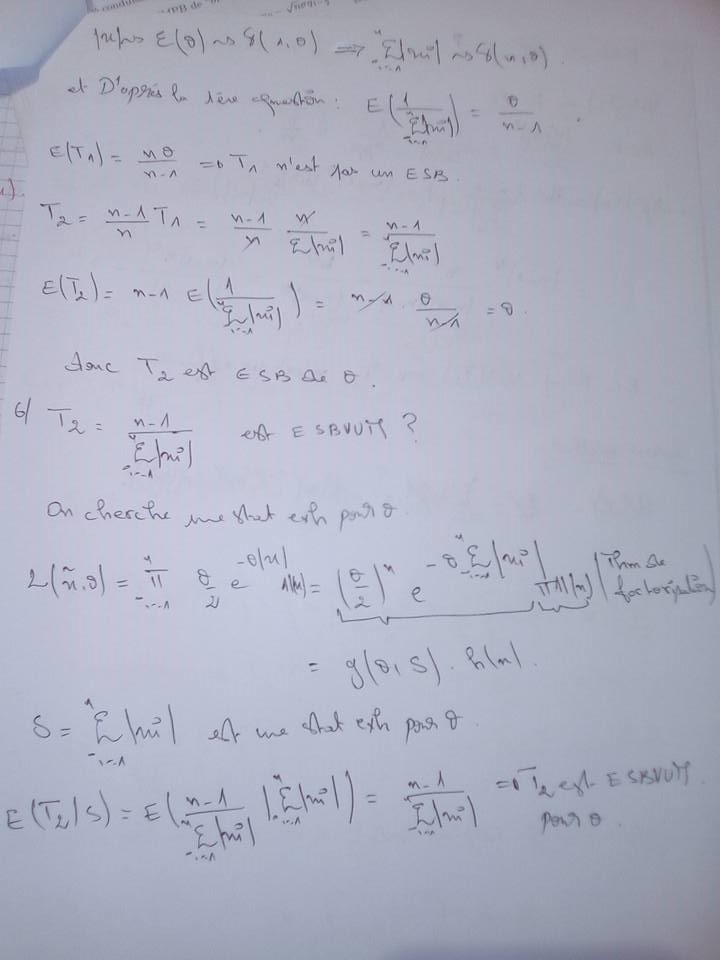 |xi| ~ E(θ) ~ γ(1,θ) ⟹ Σ_{i=1}^{n} |xi| ~ γ(n,θ).
et D'après la 1ère question : E(1/Σ_{i=1}^{n} |xi|) = θ/(n-1).
E(T1) = nθ/(n-1) ⟹ T1 n'est pas un ESB.
T2 = (n-1)/n T1 = (n-1)/n · n/Σ_{i=1}^{n} |xi| = (n-1)/Σ_{i=1}^{n} |xi|
E(T2) = n-1 E(1/Σ_{i=1}^{n} |xi|) = n-1 · θ/(n-1) = θ
donc T2 est ESB de θ.
6/ T2 = (n-1)/Σ_{i=1}^{n} |xi| est ESBVUM ?
On cherche une stat exh pour θ
L(x̃,θ) = π_{i=1}^{n} θ/2 e^{-θ|x|} 1(x) = (θ/2)^n e^{-θ Σ_{i=1}^{n} |xi|} π1(x) (Thm de factorisation)
= g(θ, S) . h(x).
S = Σ_{i=1}^{n} |xi| est une stat exh pour θ.
E(T2/S) = E((n-1)/Σ_{i=1}^{n} |xi| | Σ_{i=1}^{n} |xi|) = (n-1)/Σ_{i=1}^{n} |xi| ⟹ T2 est ESBVUM pour θ.